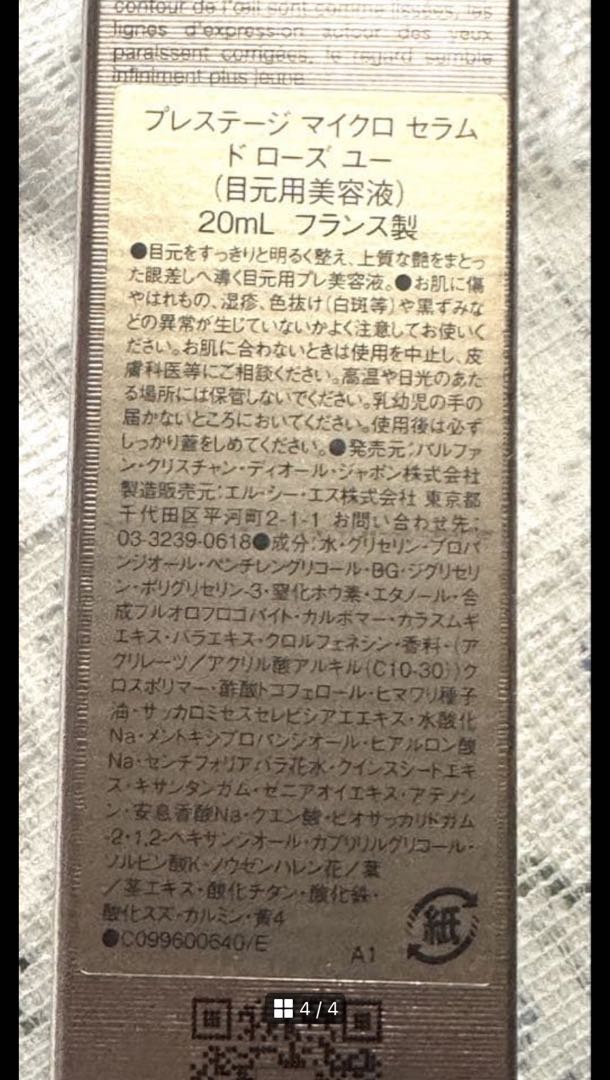 contour de l'œil sont comme lissées, les
lignes d'expression autour des yeux
paraissent corrigées, le regard semble
infiniment plus jeune
プレステージ マイクロ セラム
ド ローズ ユー
(目元用美容液)
20mL フランス製
●目元をすっきりと明るく整え、上質な艶をまとっ
た眼差しへ導く目元用プレ美容液。●お肌に傷
やはれもの、湿疹、色抜け(白斑等)や黒ずみな
どの異常が生じていないかよく注意してお使いく
ださい。お肌に合わないときは使用を中止し、皮
膚科医等にご相談ください。高温や日光のあた
る場所には保管しないでください。乳幼児の手の
届かないところにおいてください。使用後は必ず
しっかり蓋をしめてください。●発売元:パルファ
ン・クリスチャン・ディオール・ジャポン株式会社
製造販売元:エル・シー・エス株式会社 東京都
千代田区平河町2-1-1 お問い合わせ先:
03-3239-0618●成分:水・グリセリン・プロパ
ンジオール・ペンチレングリコール・BG・ジグリセリ
ン・ポリグリセリン-3・窒化ホウ素・エタノール・合
成フルオロフロゴパイト・カルボマー・カラスムギ
エキス・バラエキス・クロルフェネシン・香料・(ア
クリレーツ/アクリル酸アルキル(C10-30))ク
ロスポリマー・酢酸トコフェロール・ヒマワリ種子
油・サッカロミセスセレビシアエエキス・水酸化
Na・メントキシプロパンジオール・ヒアルロン酸
Na・センチフォリアバラ花水・クインスシードエキ
ス・キサンタンガム・ゼニアオイエキス・アデノシ
ン・安息香酸Na・クエン酸・ビオサッカリドガム
-2・1,2-ヘキサンジオール・カプリリルグリコール・
ソルビン酸K・ノウゼンハレン花/葉
/茎エキス・酸化チタン・酸化鉄・
酸化スズ・カルミン・黄4
●C099600640/E A1
紙
4 / 4